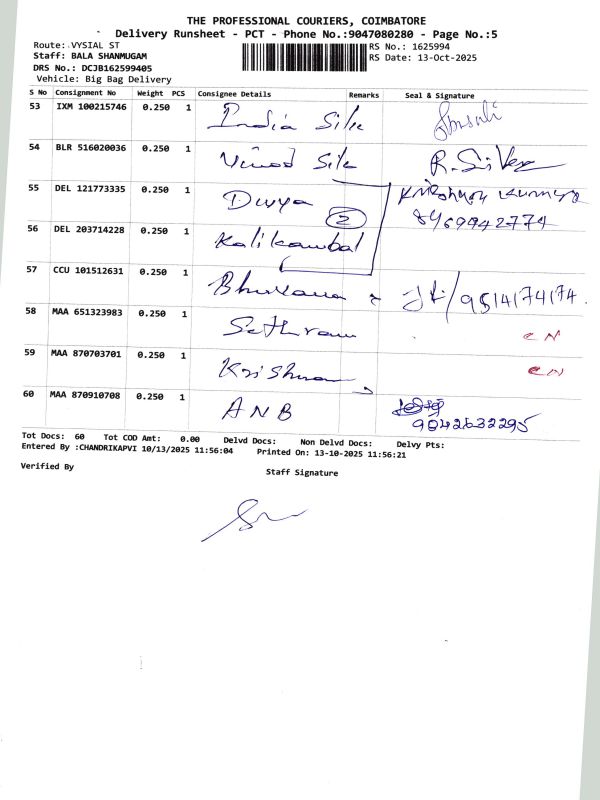 THE PROFESSIONAL COURIERS, COIMBATORE
Delivery Runsheet - PCT - Phone No.:9047080280 - Page No.:5
Route: VYSIAL ST
RS No.: 1625994
Staff: BALA SHANMUGAM
RS Date: 13-Oct-2025
DRS No.: DCJB162599405
Vehicle: Big Bag Delivery
S No Consignment No Weight PCS Consignee Details Remarks Seal & Signature
53 IXM 100215746 0.250 1 India Silk
54 BLR 516020036 0.250 1 Vinod Silk R.Silver
55 DEL 121773335 0.250 1 Divya
2
8469942774
56 DEL 203714228 0.250 1 Kalikambal
57 CCU 101512631 0.250 1 Bhuvana 9514174174
58 MAA 651323983 0.250 1 Sethuram CN
59 MAA 870703701 0.250 1 Krishna CN
60 MAA 870910708 0.250 1 ANB
9042632295
Tot Docs: 60 Tot COD Amt: 0.00 Delvd Docs: Non Delvd Docs: Delvy Pts:
Entered By :CHANDRIKAPVI 10/13/2025 11:56:04 Printed On: 13-10-2025 11:56:21
Verified By
Staff Signature